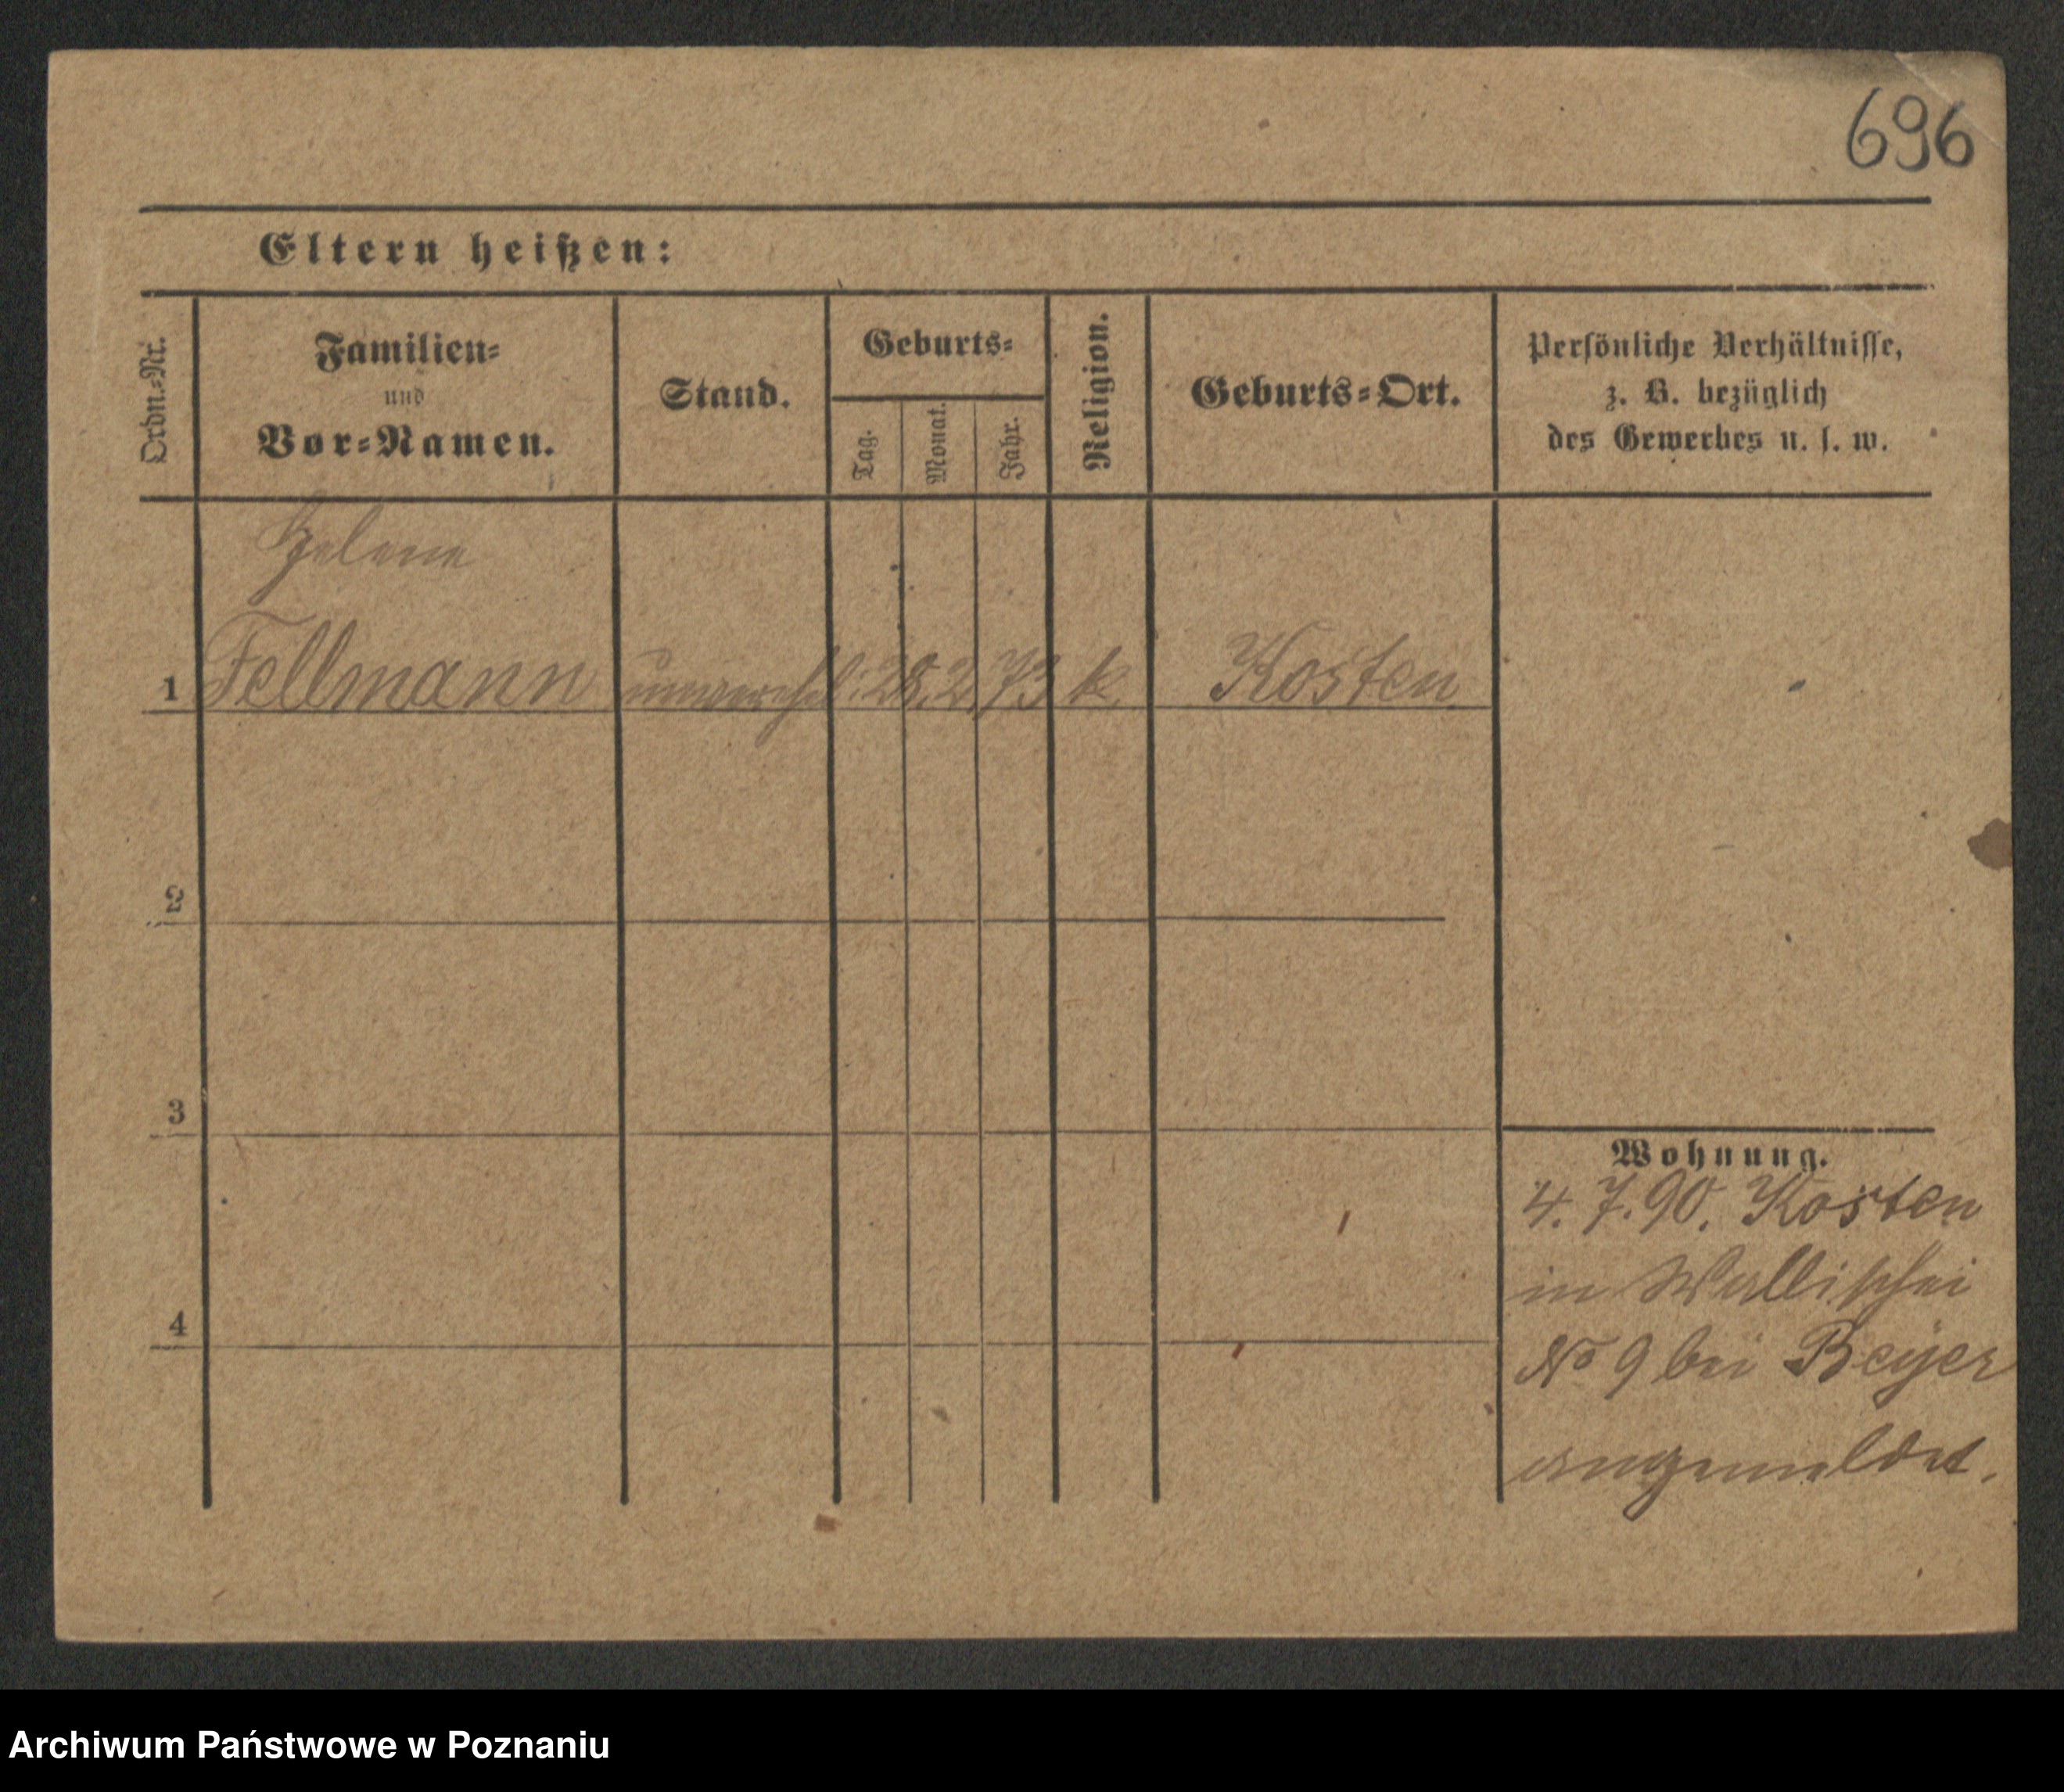 696
Eltern heißen:
Ordn.-Nr.
Familien-
und
Vor-Namen.
Stand.
Geburts-
Tag.
Monat.
Jahr.
Religion.
Geburts-Ort.
Persönliche Verhältnisse,
z. B. bezüglich
des Gewerbes u. s. w.
Helene
1 Fellmann unverehel: 28. 2. 73 k. Kosten
2
3
4
Wohnung.
4. 7. 90. Kosten
in Wallischei
No 9 bei Beyer
angemeldet.
Archiwum Państwowe w Poznaniu